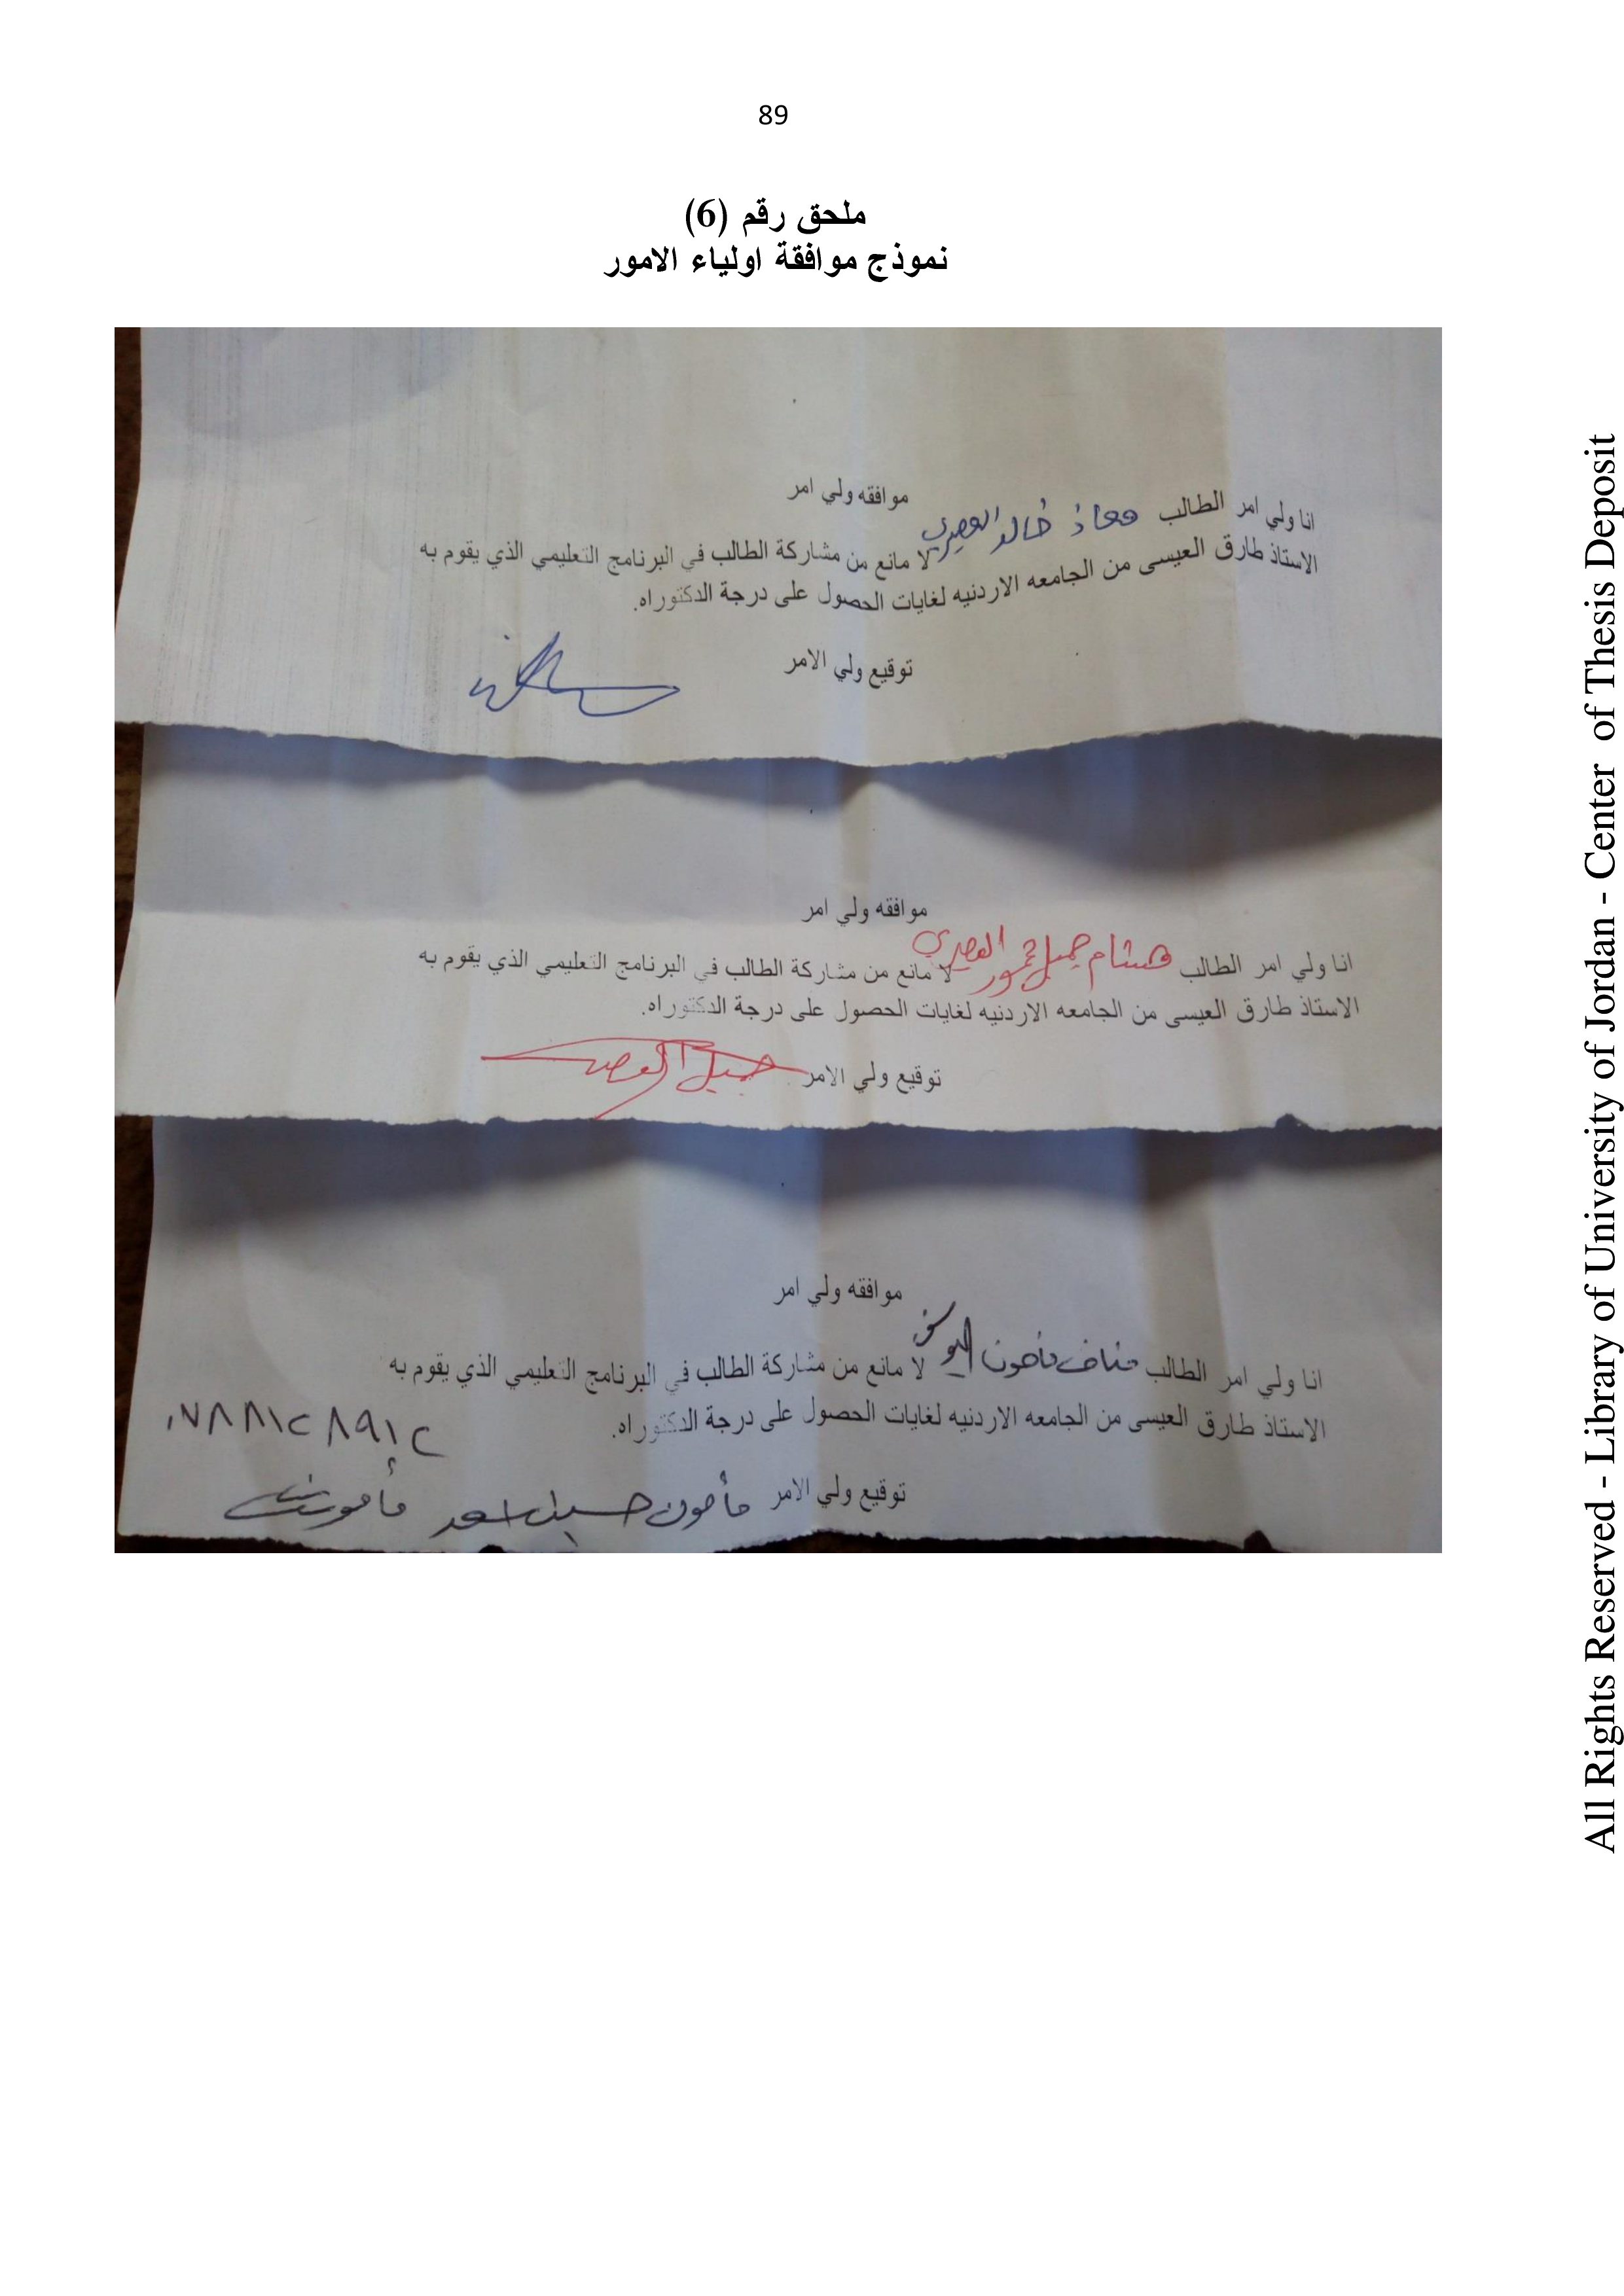 89
ملحق رقم (6)
نموذج موافقة اولياء الامور
موافقه ولي امر
انا ولي امر الطالب معاذ خالد العصيري لا مانع من مشاركة الطالب في البرنامج التعليمي الذي يقوم به
الاستاذ طارق العيسى من الجامعه الاردنيه لغايات الحصول على درجة الدكتوراه.
توقيع ولي الامر
موافقه ولي امر
انا ولي امر الطالب هشام جميل محمود العصيري لا مانع من مشاركة الطالب في البرنامج التعليمي الذي يقوم به
الاستاذ طارق العيسى من الجامعه الاردنيه لغايات الحصول على درجة الدكتوراه.
توقيع ولي الامر جميل
موافقه ولي امر
انا ولي امر الطالب مناف مأمون اليوسف لا مانع من مشاركة الطالب في البرنامج التعليمي الذي يقوم به
الاستاذ طارق العيسى من الجامعه الاردنيه لغايات الحصول على درجة الدكتوراه.
٠٧٨٨١٢٨٩١٢
توقيع ولي الامر مأمون
All Rights Reserved - Library of University of Jordan - Center of Thesis Deposit